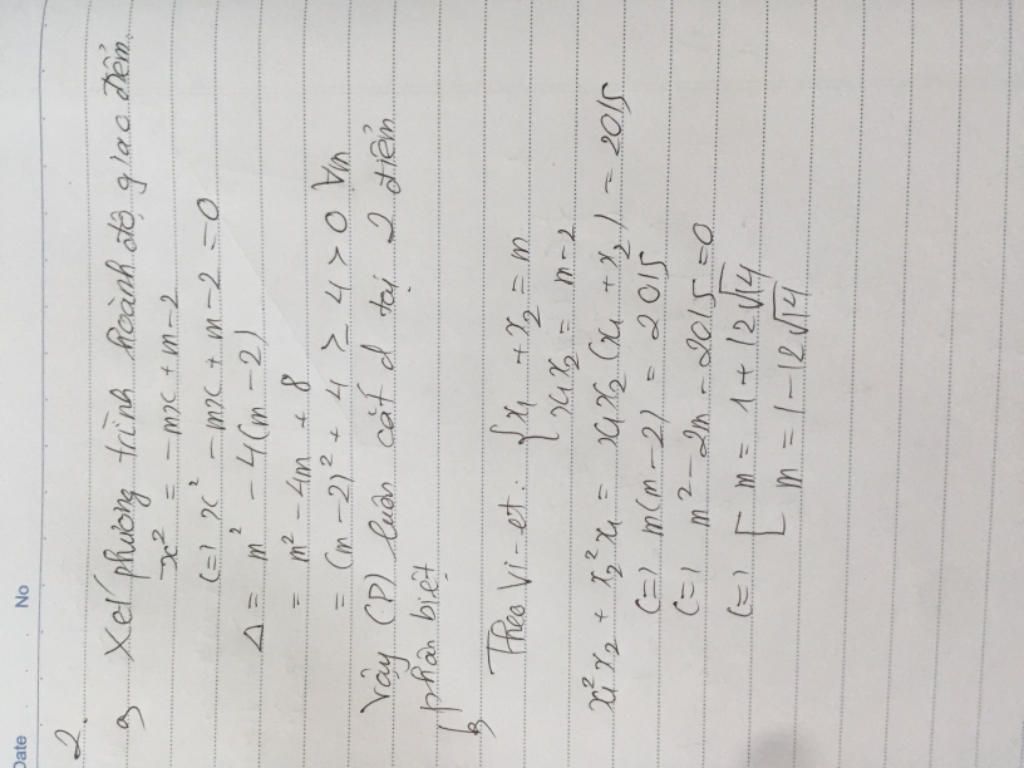 Date No
2.
a) Xét phương trình hoành độ giao điểm.
x² = -mx + m - 2
(=) x² - mx + m - 2 = 0
Δ = m² - 4(m - 2)
= m² - 4m + 8
= (m - 2)² + 4 ≥ 4 > 0 ∀m
Vậy (P) luôn cắt d tại 2 điểm
phân biệt
b) Theo Vi-et: { x₁ + x₂ = m
x₁x₂ = m - 2
x₁²x₂ + x₂²x₁ = x₁x₂(x₁ + x₂) = 2015
(=) m(m - 2) = 2015
(=) m² - 2m - 2015 = 0
(=) [ m = 1 + 12√14
m = 1 - 12√14